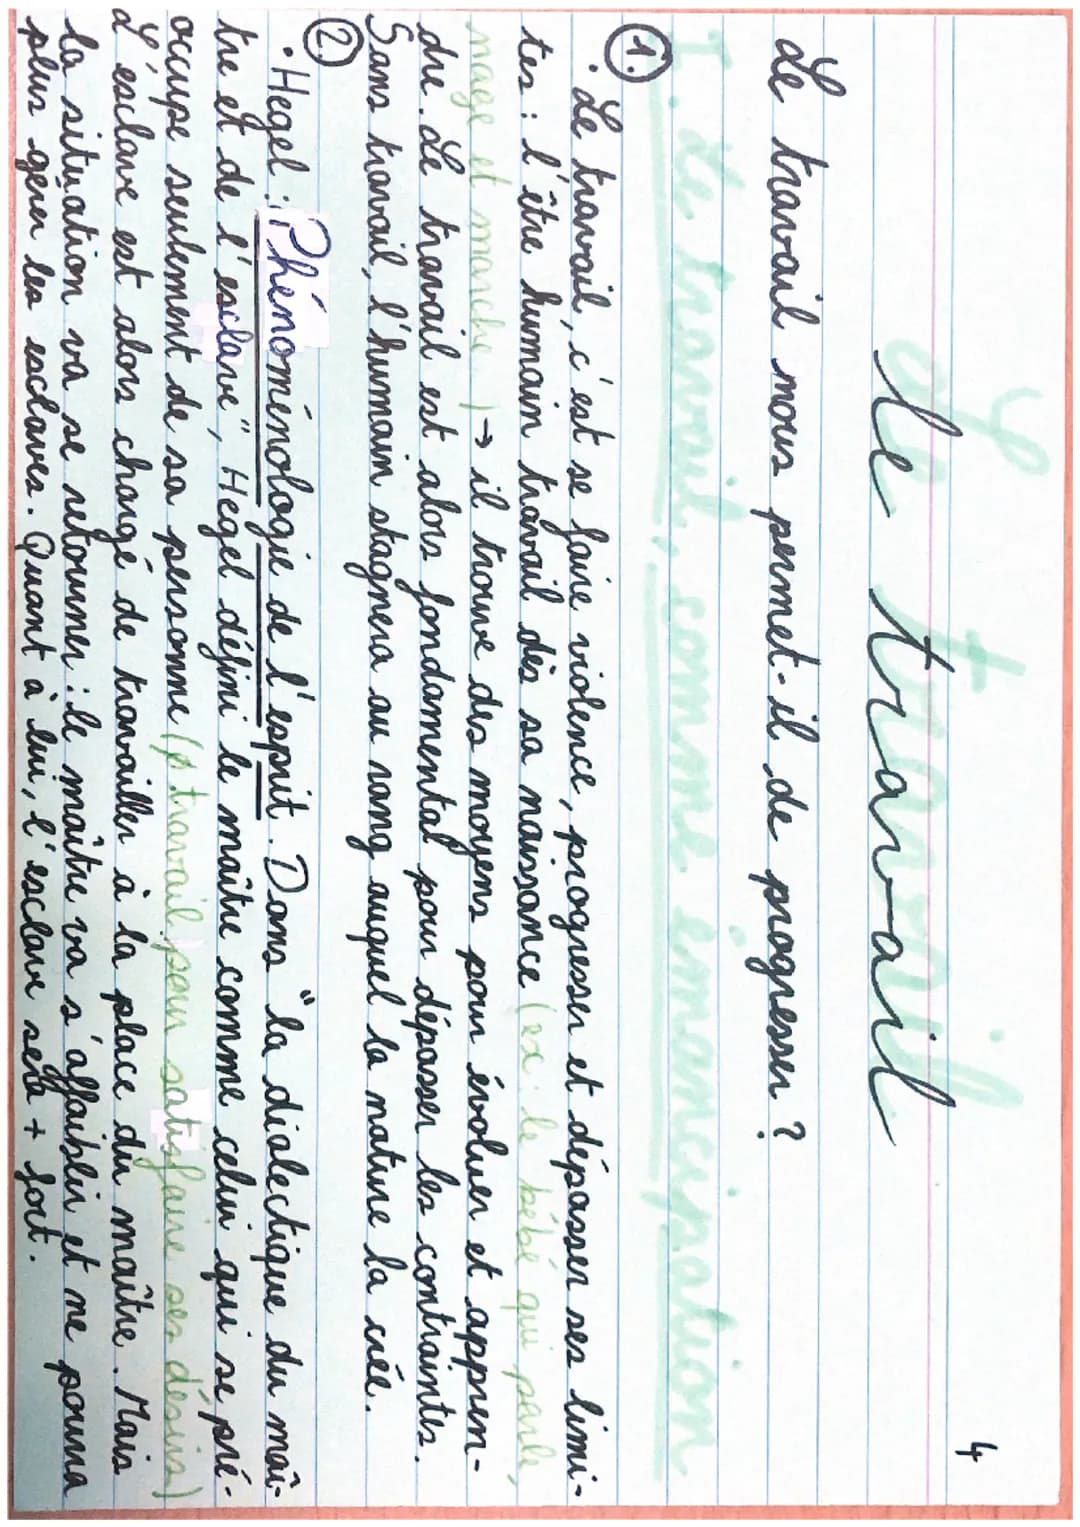 4
Le travail
Le travail nous permet-il de progresser ?
I. Le travail, comme émancipation
1.
• Le travail, c'est se faire violence, progresser et dépasser ses limi-
tes : l'être humain travail dès sa naissance (ex: le bébé qui parle,
nage et marche.) → il trouve des moyens pour évoluer et appren-
dre. Le travail est alors fondamental pour dépasser les contraintes.
Sans travail, l'humain stagnera au rang auquel la nature la créé.
2.
• Hegel : Phénoménologie de l'esprit. Dans "la dialectique du maî-
tre et de l'esclave", Hegel défini le maître comme celui qui se pré-
occupe seulement de sa personne (p travail pour satisfaire ses désirs)
L'esclave est alors chargé de travailler à la place du maître. Mais
la situation va se retourner : le maître va s'affaiblir et ne pourra
plus gérer les esclaves. Quant à lui, l'esclave sera + fort.